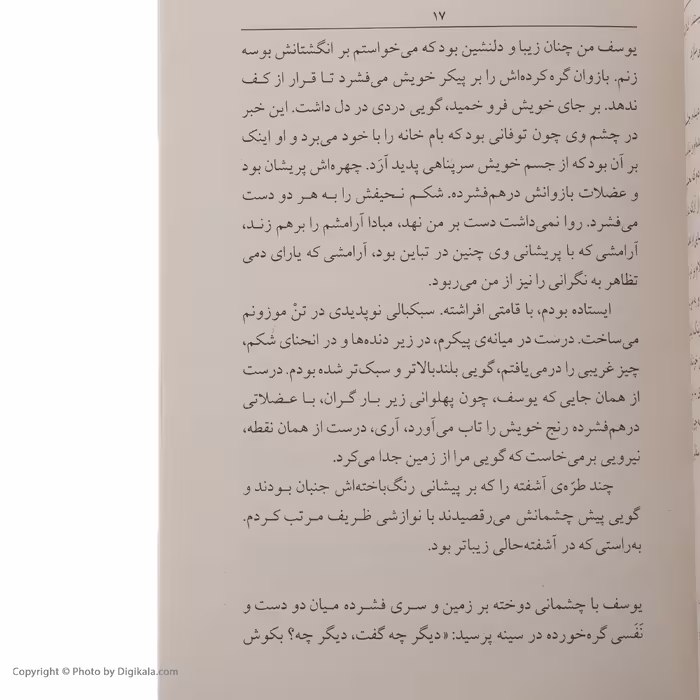 ۱۷
یوسف من چنان زیبا و دلنشین بود که می‌خواستم بر انگشتانش بوسه
زنم. بازوان گره کرده‌اش را بر پیکر خویش می‌فشرد تا قرار از کف
ندهد. بر جای خویش فرو خمید، گویی دردی در دل داشت. این خبر
در چشم وی چون توفانی بود که بام خانه را با خود می‌برد و او اینک
بر آن بود که از جسم خویش سرپناهی پدید آرَد. چهره‌اش پریشان بود
و عضلات بازوانش درهم‌فشرده. شکم نحیفش را به هر دو دست
می‌فشرد. روا نمی‌داشت دست بر من نهد، مبادا آرامشم را برهم زند،
آرامشی که با پریشانی وی چنین در تباین بود، آرامشی که یارای دمی
تظاهر به نگرانی را نیز از من می‌ربود.
ایستاده بودم، با قامتی افراشته. سبکبالی نوپدیدی در تنْ موزونم
می‌ساخت. درست در میانه‌ی پیکرم، در زیر دنده‌ها و در انحنای شکم،
چیز غریبی را درمی‌یافتم، گویی بلندبالاتر و سبک‌تر شده بودم. درست
از همان جایی که یوسف، چون پهلوانی زیر بار گران، با عضلاتی
درهم‌فشرده رنج خویش را تاب می‌آورد، آری، درست از همان نقطه،
نیرویی برمی‌خاست که گویی مرا از زمین جدا می‌کرد.
چند طرّه‌ی آشفته را که بر پیشانی رنگ‌باخته‌اش جنبان بودند و
گویی پیش چشمانش می‌رقصیدند با نوازشی ظریف مرتب کردم.
به‌راستی که در آشفته‌حالی زیباتر بود.
یوسف با چشمانی دوخته بر زمین و سری فشرده میان دو دست و
نَفَسی گره‌خورده در سینه پرسید: «دیگر چه گفت، دیگر چه؟ بکوش
Copyright © Photo by Digikala.com